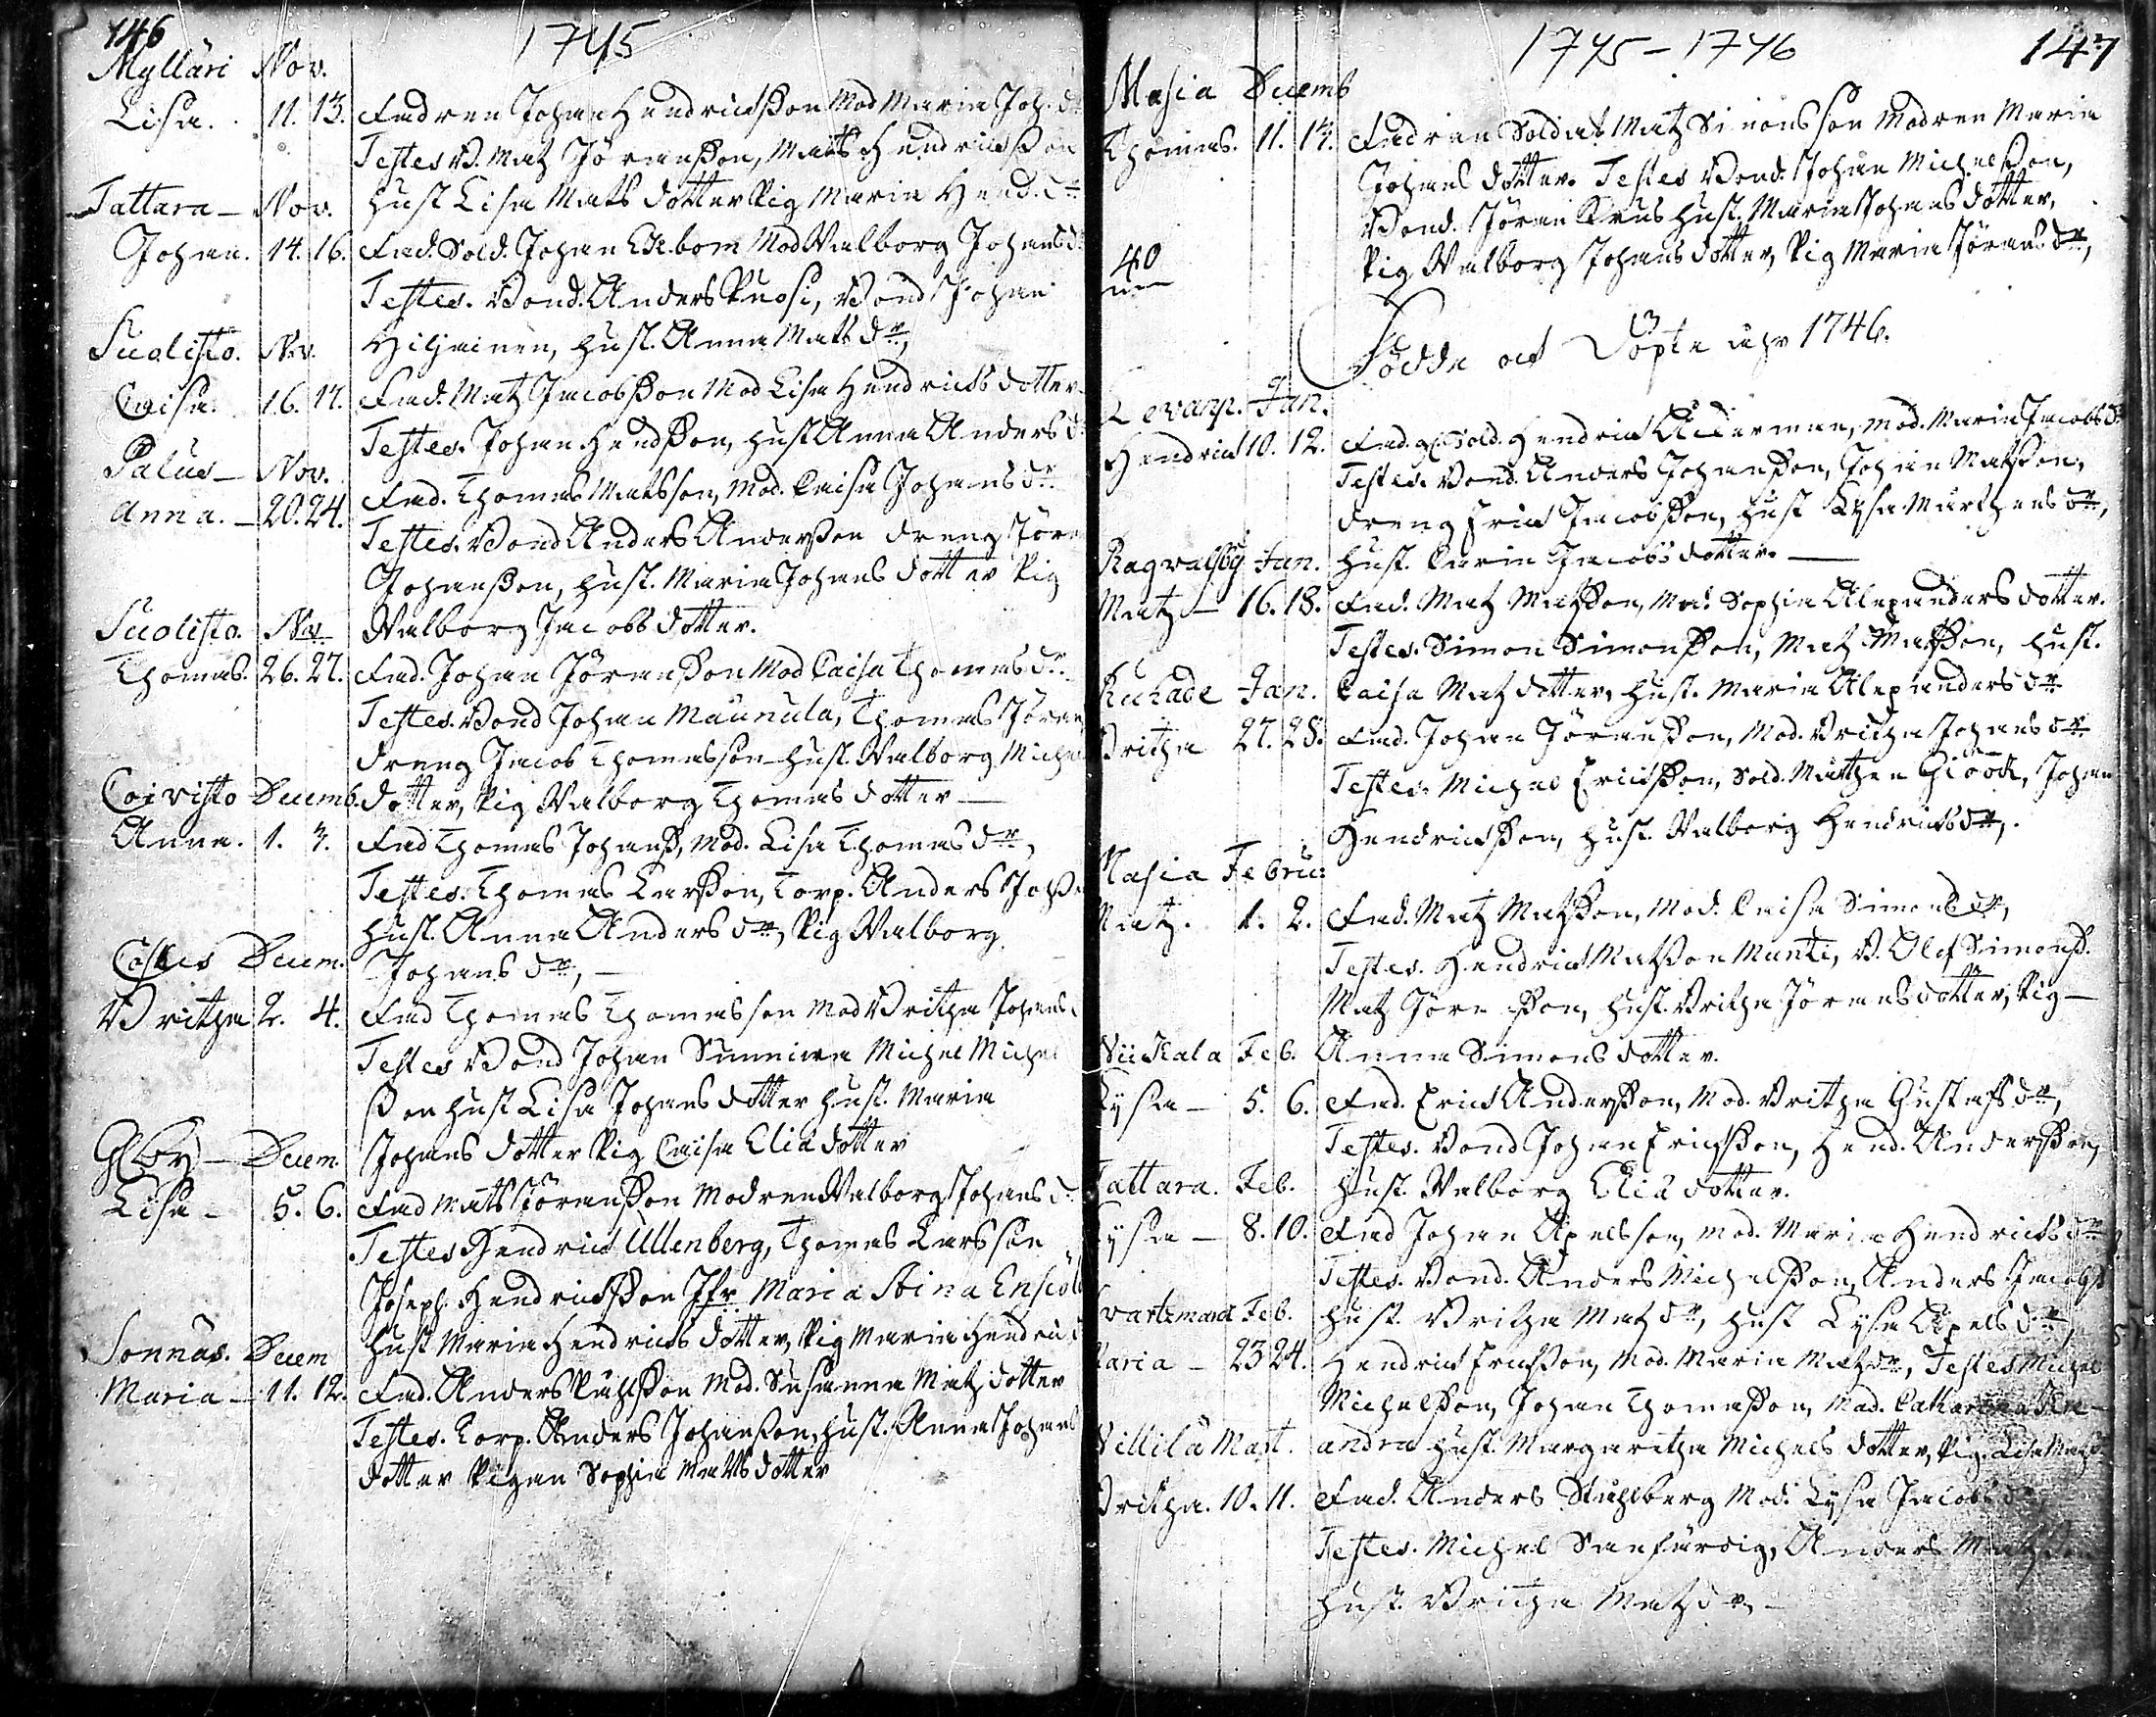 146
1745
Mylläri Nov.
Lisa. 11. 13. Fadren Johan Hendrichsson Mod Maria Joh. dr
Testes B. Matz Jöransson, Mats Hendrichsson
hust Lisa Mats dotter Pig Maria Hend. dr
Tattara - Nov.
Johan. 14. 16. Fad. Sold. Johan Ekbom Mod Valborg Johans dr
Testes. Bond. Anders Kuosi, Bond Johan
Hiljainen, hust. Anna Mats dr,
Suolisto. Nov.
Caisa. 16. 17. Fad. Matz Jacobsson Mod Lisa Hendrichs dotter
Testes. Johan Hendsson, hust Anna Anders dr
Palus - Nov.
Anna. - 20. 24. Fad. Thomas Matsson, Mod. Caisa Johans dr
Testes. Bond Anders Andersson dreng Jöran
Johansson, hust. Maria Johans dotter Pig
Valborg Jacobs dotter.
Suolisto. Nov
Thomas. 26. 27. Fad. Johan Jöransson Mod Caisa Thomas dr
Testes. Bond Johan Maunula, Thomas Jöran
dreng Jacob Thomasson hust. Valborg Michels
dotter, Pig Valborg Thomas dotter -
Coivisto Decemb.
Anna. 1. 3. Fad Thomas Johanss, Mod. Lisa Thomas dr,
Testes. Thomas Larsson, Torp. Anders Johss
hust. Anna Anders dr, Pig Valborg
Johans dr, -
Decem.
Britha 2. 4. Fad Thomas Thomasson Mod Britha Johans
Testes Bond Johan Michel Michel
sson hust Lisa Johans dotter hust. Maria
Johans dotter Pig Caisa Elia dotter
Decem.
Lisa - 5. 6. Fad Mats Jöransson Modren Valborg Johans d
Testes Hendrich Ullenberg, Thomas Larsson
Joseph Hendrichsson Jfr Maria Stina
hust Maria Hendrichs dotter, Pig Maria Hendrichs
Sonnäs. Decem
Maria - 11. 12. Fad. Anders Mod. Susanna Matz dotter
Testes. Torp. Anders Johansson, hust. Anna Johans
dotter Pigan Sophia Matts dotter
1745 - 1746
147
Masia Decemb
Thomas. 11. 13. Fadren Soldat Matz Simonsson Modren Maria
Johans dotter. Testes Bond. Johan Michelsson,
Bond. Jöran hust. Maria Johans dotter,
Pig Valborg Johans dotter, Pig Maria Jörans dr,
40
Födde och Döpte åhr 1746.
Levanp. Jan.
Hendrich 10. 12. Fad. Sold. Hendrich Åkerman, Mod. Maria Jacobs dr
Testes. Bond. Anders Johansson, Johan Matsson,
dreng Erich Jacobsson, hust Lysa Marthens dr,
hust. Carin Jacobs dotter. -
Ragvalsby Jan.
Matz - 16. 18. Fad. Matz Matzson, Mod. Sophia Alexanders dotter.
Testes. Simon Simonsson, Matz Matsson, hust.
Caisa Matz dotter, hust. Maria Alexanders dr
Kuhade Jan.
Britha 27. 28. Fad. Johan Jöransson, Mod. Britha Johans dr
Testes. Michel Erichsson, Sold. Marthen Giöök, Johan
Hendrichsson, hust. Valborg Hendrichs dr,
Masia Febru:
Matz. 1. 2. Fad. Matz Matzson, Mod. Caisa Simons dr,
Testes. Hendrich Matsson Munti, B. Olof Simonss.
Matz Jöransson, hust. Britha Jörans dotter, Pig -
Anna Simons dotter.
Viikala Feb.
Lysa - 5. 6. Fad. Erich Andersson, Mod. Britha Gustafs dr,
Testes. Bond Johan Erichsson, Hend. Andersson,
hust. Valborg Elia dotter.
Tattara. Feb.
Lysa - 8. 10. Fad Johan Axelsson, Mod. Maria Hendrichs dr
Testes. Bond. Anders Michelsson, Anders Jacobss
hust. Britha Matz dr, hust Lysa Axels dr
Svartzmark Feb.
Maria - 23 24. Hendrich Erichsson, Mod. Maria Matz dr, Testes Michel
Michelsson, Johan Thomasson, Mad. Catharina
andra hust. Margaretha Michels dotter, Pig. Lisa Matz
Villilä Mart.
Britha. 10. 11. Fad. Anders Stuhlberg Mod. Lysa Jacobs dr
Testes. Michel Sanfärdig, Anders Matzson
hust. Britha Matz dr, -